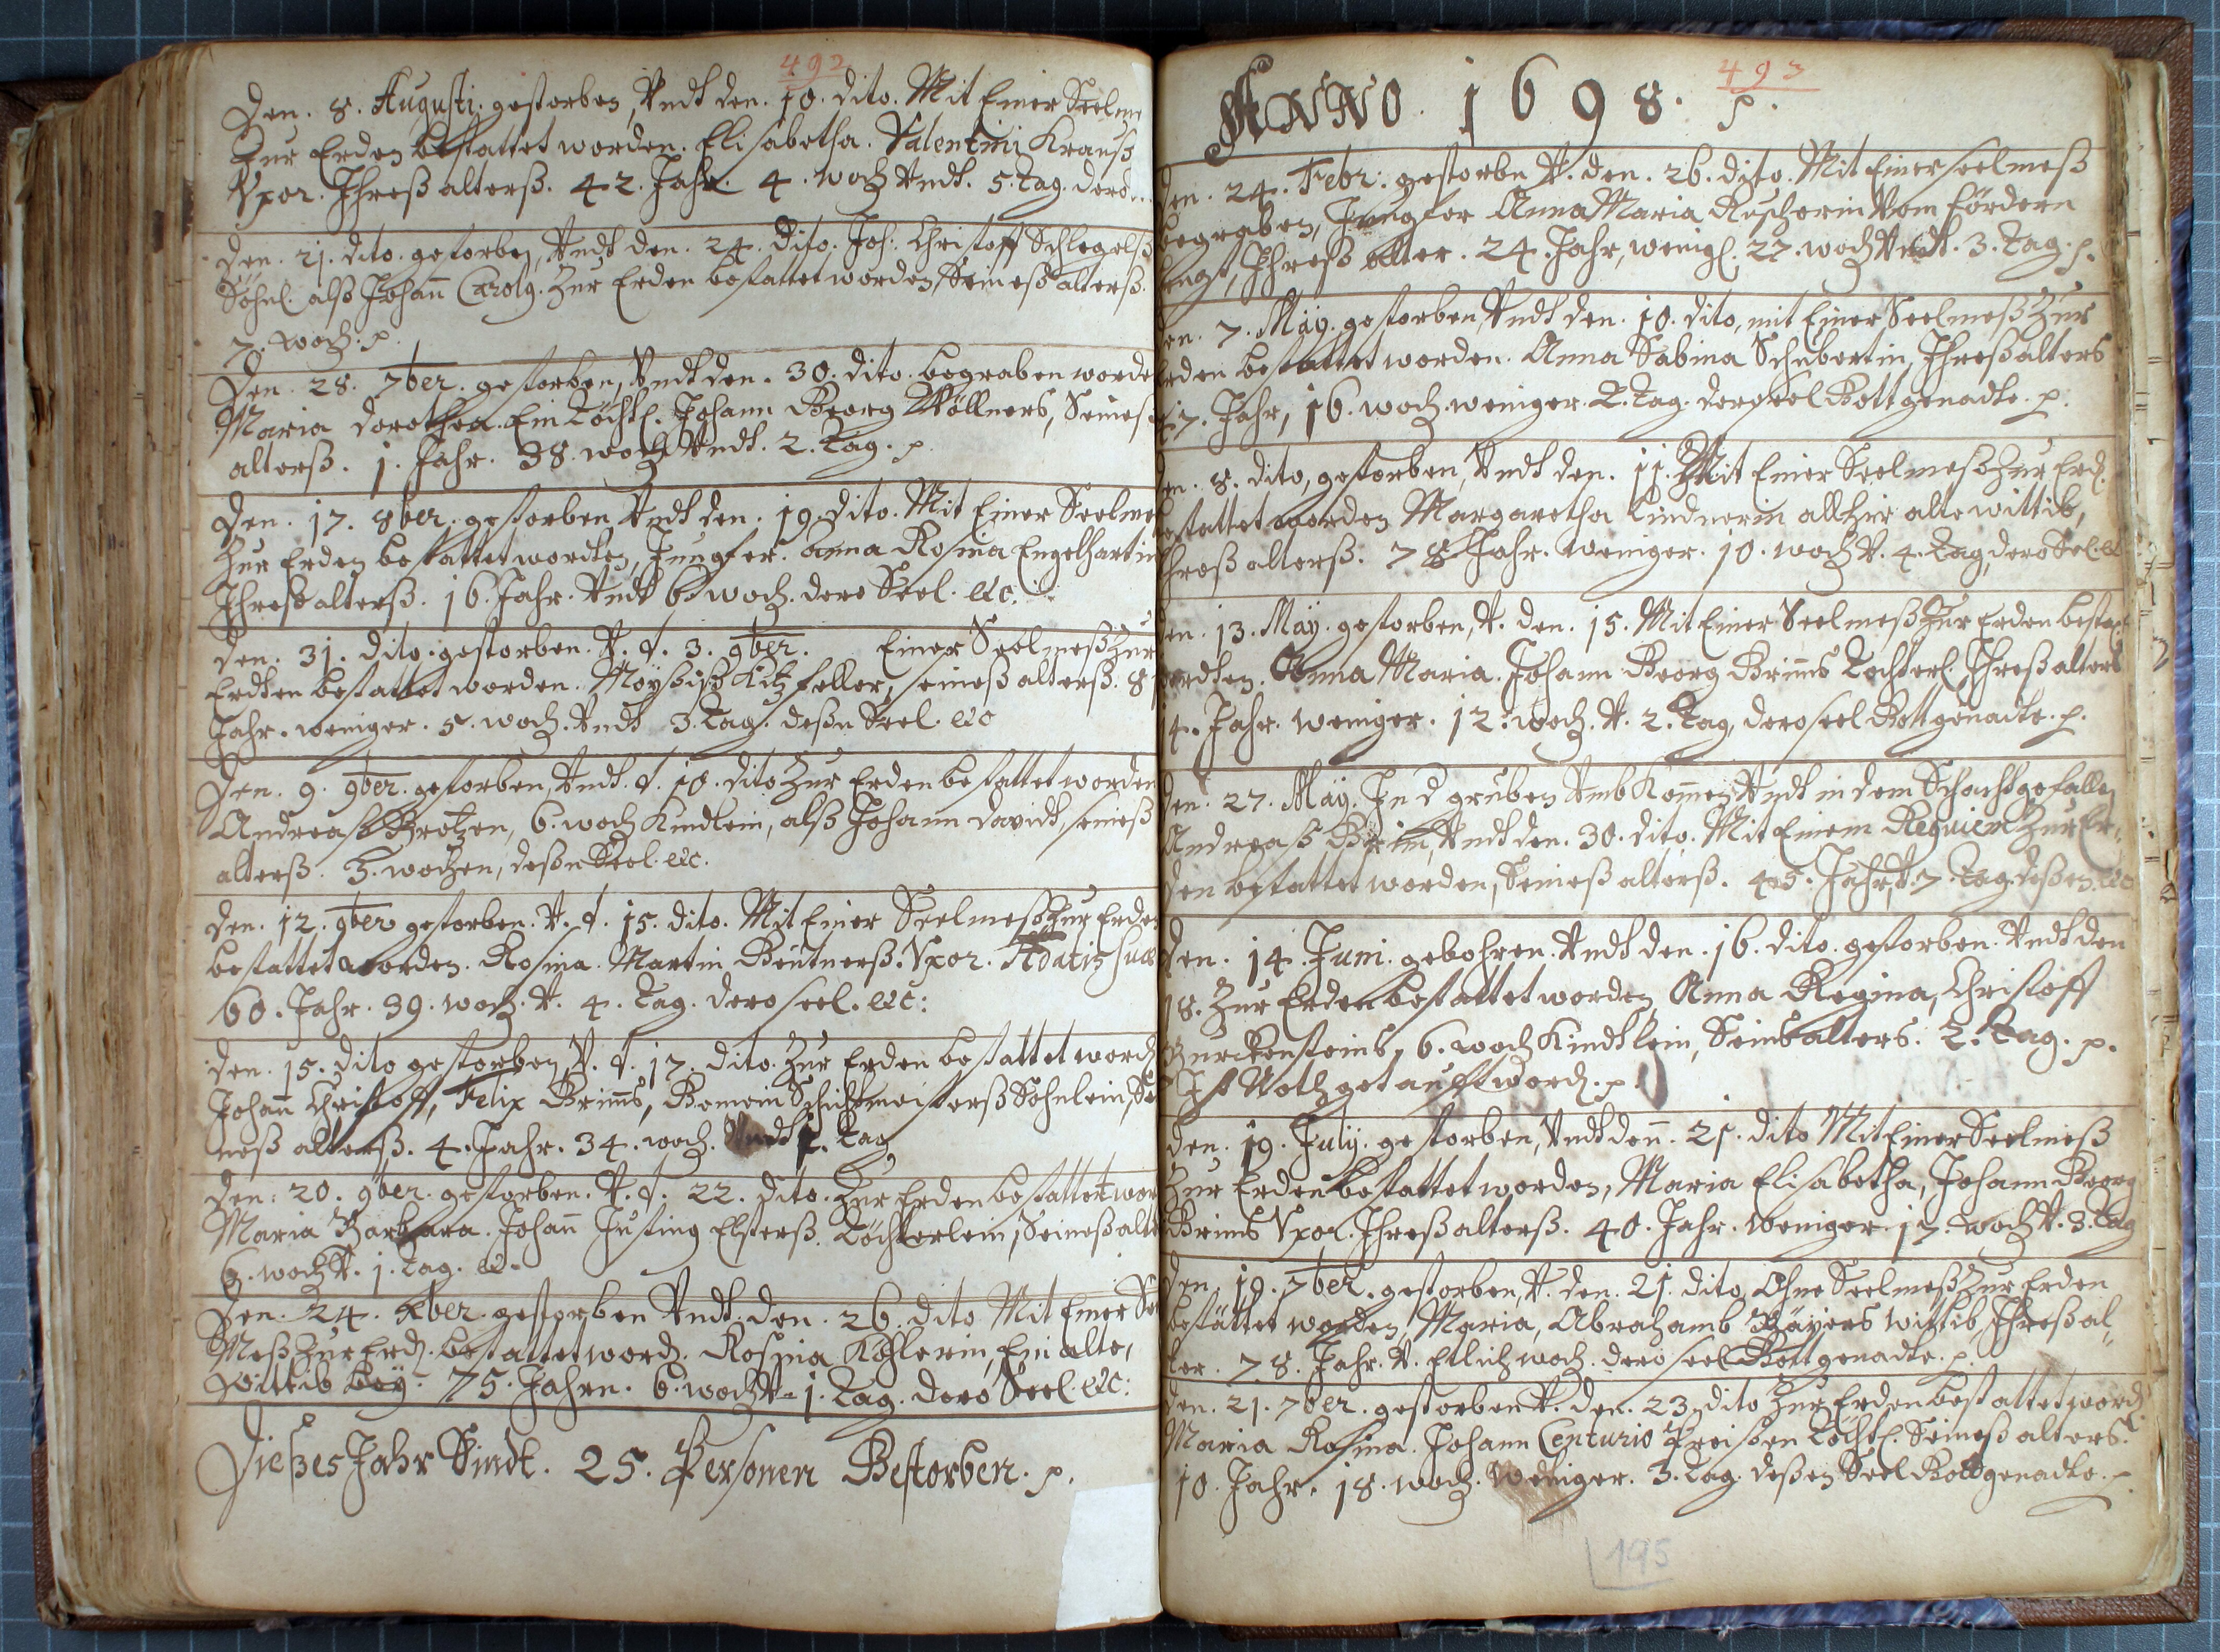 492
Den. 8. Augusti. gestorben, Undt den. 10. dito. Mit Einer Seelme
Zur Erden bestattet worden. Elisabetha. Valentini Krauß
Vxor. Ihreß alterß. 42. Jahr. 4. woch Undt. 5. tag. dero...
Den. 21. dito. gestorben, Undt den. 24. dito. Joh: Christoff Schlegelß
Söhnl. alß Johann Carolg. Zur Erden bestattet worden, Seineß alterß.
7. woch. p.
Den. 28. 7ber. gestorben, Undt den. 30. dito. begraben worde
Maria dorothea. Ein Töchtl. Johann Georg Wöllners, Seines
alterß. 1. Jahr. 38. woch Undt. 2. Tag. p.
Den. 17. 8ber. gestorben Undt den. 19. dito. Mit Einer Seelme
Zur Erden bestattet wordten, Jungfer. anna Rosina Engelhartin
Ihreß alterß. 16. Jahr. Undt 6. woch. dero Seel. etc.
Den. 31. dito. gestorben. V. d. 3. 9ber. Einer Seelmeß Zur
Erdten bestattet worden. Moyßiß Kitzfeller, seineß alterß. 8
Jahr. weniger. 5. woch. Undt 3. Tag. deßn Seel. etc
Den. 9. 9ber. gestorben, Undt. d. 10. dito Zur Erden bestattet worden
Andreaß Brotzen, 6. woch Kindlein, alß Johann davidt, seineß
alterß. 3. wochen, deßn Seel. etc.
Den. 12. 9ber gestorben. V. d. 15. dito. Mit Einer Seelmeß Zur Erden
bestattet worden. Rosina. Martin Beütnerß. Vxor. Ædatis suæ
60. Jahr. 39. woch. V. 4. Tag. dero seel. etc:
Den. 15. dito gestorben, V. d. 17. dito. Zur Erden bestattet word
Johann Christoff, Felix Brimß, Gemein Schichtmeisterß Söhnlein, Se
neß alterß. 4. Jahr. 34. woch. Undt 1. Tag
Den. 20. 9ber. gestorben. V. d. 22. dito. Zur Erden bestattet wor
Maria Barbara. Johann Justing Elsterß. Töchterlein, Seineß alte
6. woch V. 1. Tag. etc.
Den. 24. xber. gestorben Undt. den. 26. dito Mit Einer Se
Meß Zur Erd. bestattet word. Rosina Köhlerin, Ein alte,
Wittib Bey. 75. Jahrn. 6. woch V. 1. Tag. dero Seel. etc:
Dießes Jahr Sindt. 25. Personen Gestorben. p.
493
ANNO. 1698. p.
den. 24. Febr: gestorbn V. den. 26. dito. Mit Einer seelmeß
begraben, Jungfer Anna Maria Roscherin Vom fördern
Ihreß alter. 24. Jahr, wenigl. 27. woch Undt. 3. Tag. p.
den. 7. Maÿ. gestorben, Undt den. 10. dito, mit Einer Seelmeß Zur
Erden bestattet worden. Anna Sabina Schubertin, Ihreß alters
47. Jahr, 16. woch weniger. 2. Tag. dero seel Gott genadte. p.
den. 8. dito, gestorben, Undt den. 11. Mit Einer Seelmeß Zur Erd.
bestattet worden Margaretha Lindnerin allhir alte wittib,
Ihreß alterß. 78 Jahr. weniger. 10. woch V. 4. Tag, dero Sel. etc
den. 13. Maÿ. gestorben, V. den. 15. Mit Einer Seelmeß Zur Erden bestat
wordten. Anna Maria. Johann Georg Brimß Tochterl. Ihreß alters
14. Jahr. weniger. 12. woch. V. 2. Tag, dero seel Gott genadte. p.
den. 27. Maÿ. In d gruben Umb Kommen Undt in dem Schacht gefallen
Andreaß Brim, Undt den. 30. dito. Mit Einem Requiem Zur Er„
den bestattet worden, Seineß alterß. 45. Jahr, V. 7. Tag. deßen etc
den. 14. Juni. gebohren Undt den. 16. dito. gestorben. Undt den
18. Zur Erden bestattet worden, Anna Regina, Christoff
Burckensteinß, 6. woch Kindtlein, Seinß alters. 2. Tag. p.
Ist Noth getaufft word. p.
den. 19. July. gestorben, Undt denn. 21. dito Mit Einer Seelmeß
Zur Erden bestattet worden, Maria Elisabetha, Johann Georg
Brimß Vxor. Ihreß alterß. 40. Jahr. weniger. 17. woch V. 3. Tag
den. 19. 7ber. gestorben, V. den. 21. dito Ohne Seelmeß Zur Erden
bestättet worden, Maria, Abrahamb Bäÿers Wittib, Ihreß al„
ter. 78. Jahr. V. Etlich woch. dero seel Gott genadte. p.
den. 21. 7ber. gestorben V. den. 23. dito Zur Erden bestattet word.
Maria Rosina. Johann Centurio Preißen Töchtl. Seineß alters.
10. Jahr. 18. woch. Weniger. 3. Tag. deßen Seel Gott genadte. p
195